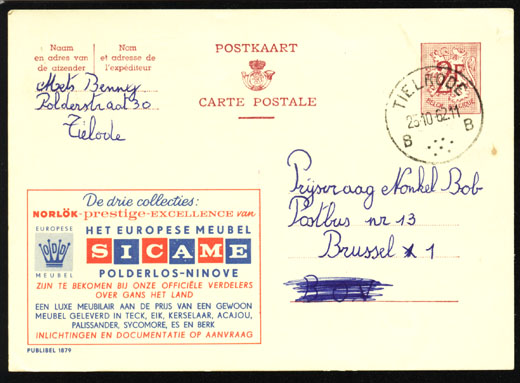 Naam
en adres van
de afzender
Nom
et adresse de
l'expéditeur
POSTKAART
CARTE POSTALE
2F
BELGIE-BELGIQUE
TIELRODE
25-10-62.11
B B
Mets Benny
Polderstraat 30
Tielode
Prijsvraag Nonkel Bob
Postbus nr 13
Brussel 1
De drie collecties:
NORLÖK-prestige-EXCELLENCE van
EUROPESE
MEUBEL
HET EUROPESE MEUBEL
SICAME
POLDERLOS-NINOVE
ZIJN TE BEKOMEN BIJ ONZE OFFICIËLE VERDELERS
OVER GANS HET LAND
EEN LUXE MEUBILAIR AAN DE PRIJS VAN EEN GEWOON
MEUBEL GELEVERD IN TECK, EIK, KERSELAAR, ACAJOU,
PALISSANDER, SYCOMORE, ES EN BERK
INLICHTINGEN EN DOCUMENTATIE OP AANVRAAG
PUBLIBEL 1879